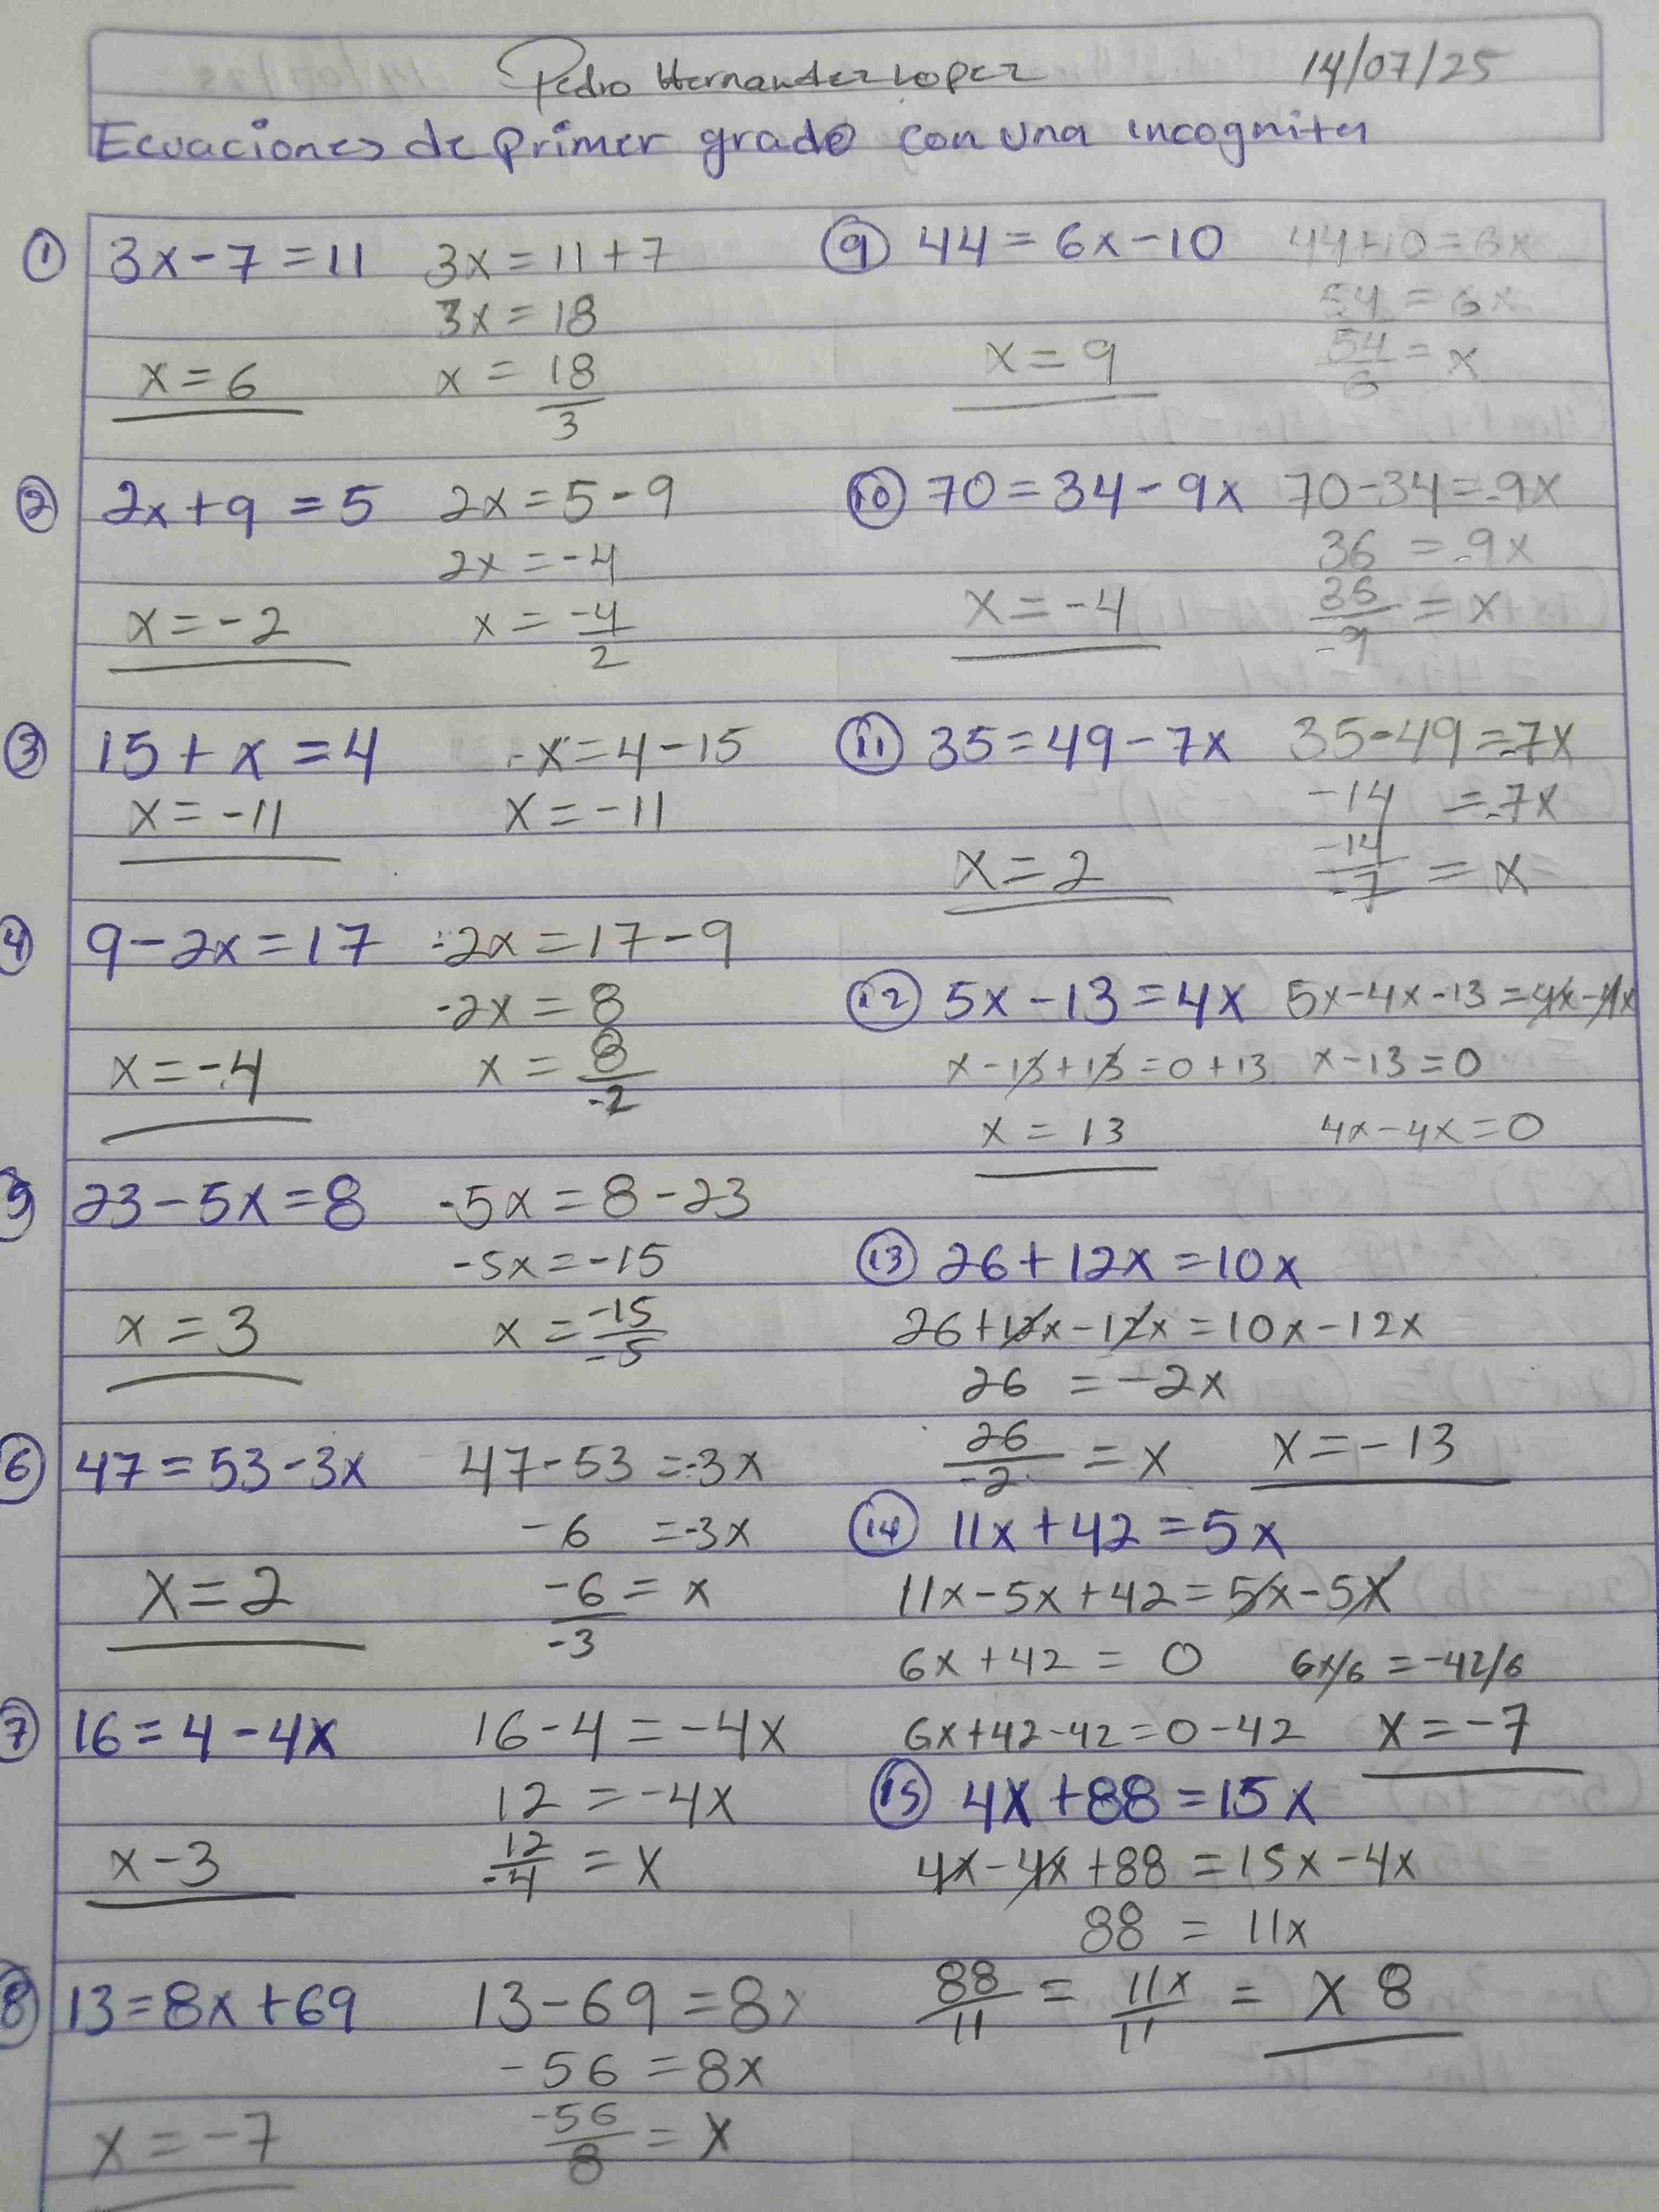 Pedro Hernandez Lopez 14/07/25
Ecuaciones de primer grado con una incognita
① 3x - 7 = 11 3x = 11 + 7
3x = 18
x = 6 x = 18/3
② 2x + 9 = 5 2x = 5 - 9
2x = -4
x = -2 x = -4/2
③ 15 + x = 4 x = 4 - 15
x = -11 x = -11
④ 9 - 2x = 17 -2x = 17 - 9
-2x = 8
x = -4 x = 8/-2
⑤ 23 - 5x = 8 -5x = 8 - 23
-5x = -15
x = 3 x = -15/-5
⑥ 47 = 53 - 3x 47 - 53 = -3x
-6 = -3x
x = 2 -6/-3 = x
⑦ 16 = 4 - 4x 16 - 4 = -4x
12 = -4x
x - 3 12/-4 = x
⑧ 13 = 8x + 69 13 - 69 = 8x
-56 = 8x
x = -7 -56/8 = x
⑨ 44 = 6x - 10 44 + 10 = 6x
54 = 6x
x = 9 54/6 = x
⑩ 70 = 34 - 9x 70 - 34 = -9x
36 = -9x
x = -4 36/-9 = x
⑪ 35 = 49 - 7x 35 - 49 = -7x
-14 = -7x
x = 2 -14/-7 = x
⑫ 5x - 13 = 4x 5x - 4x - 13 = 4x - 4x
x - 13 + 13 = 0 + 13 x - 13 = 0
x = 13 4x - 4x = 0
⑬ 26 + 12x = 10x
26 + 12x - 12x = 10x - 12x
26 = -2x
26/-2 = x x = -13
⑭ 11x + 42 = 5x
11x - 5x + 42 = 5x - 5x
6x + 42 = 0 6x/6 = -42/6
6x + 42 - 42 = 0 - 42 x = -7
⑮ 4x + 88 = 15x
4x - 4x + 88 = 15x - 4x
88 = 11x
88/11 = 11x/11 = x 8